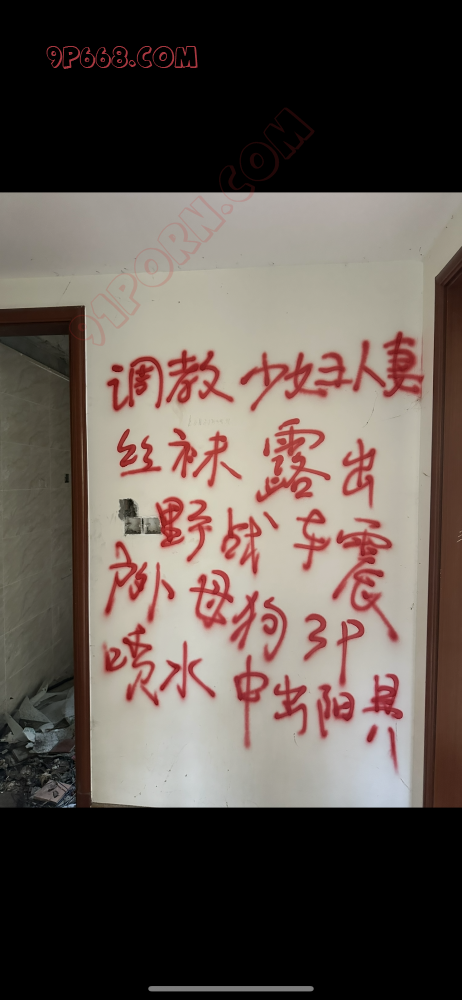 9P668.COM
91PORN.COM
调教少妇人妻
丝袜露出
野战车震
户外母狗3P
喷水中出阳具